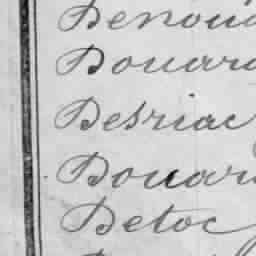 Benou
Bouar
Besriac
Bouar
Betoc